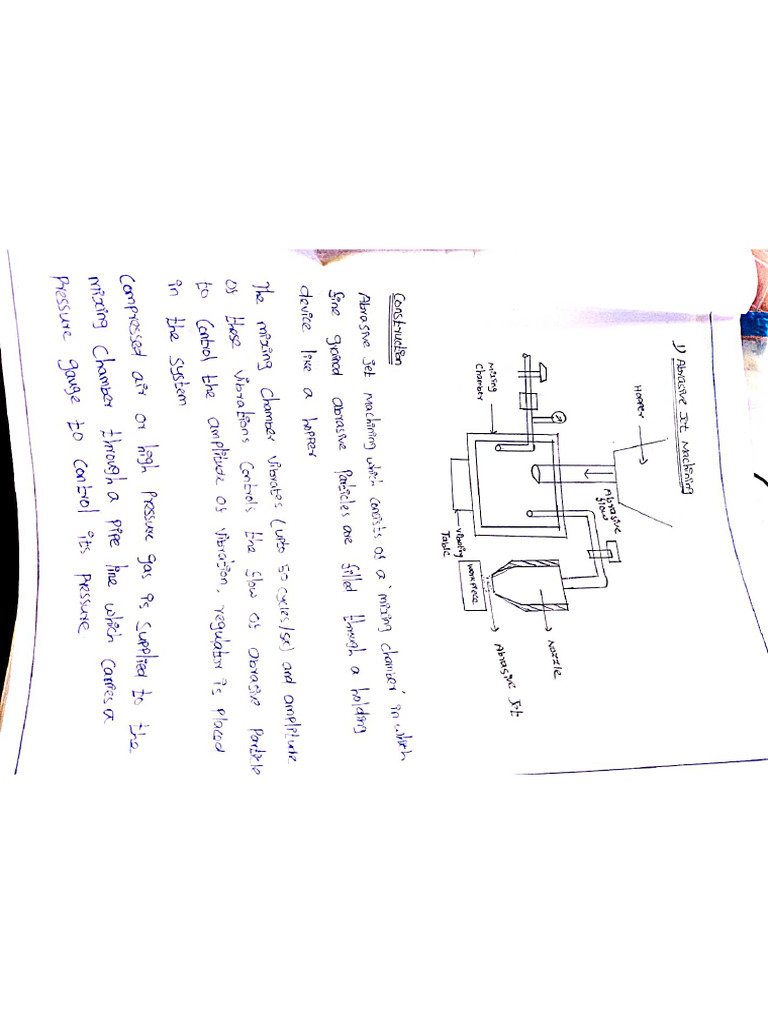 1) Abrasive Jet Machining
Hopper
Abrasive
flow
Mixing
chamber
Vibrating
Table
workpiece
Nozzle
Abrasive Jet
Construction
Abrasive Jet Machining which consists of a 'mixing chamber' in which
fine grained abrasive particles are filled through a holding
device like a hopper
The mixing chamber vibrates (upto 50 cycles/sec) and amplitude
of these vibrations controls the flow of abrasive particle
to control the amplitude of vibration, regulator is placed
in the system
Compressed air or high pressure gas is supplied to the
mixing chamber through a pipe line which carries a
pressure gauge to control its pressure